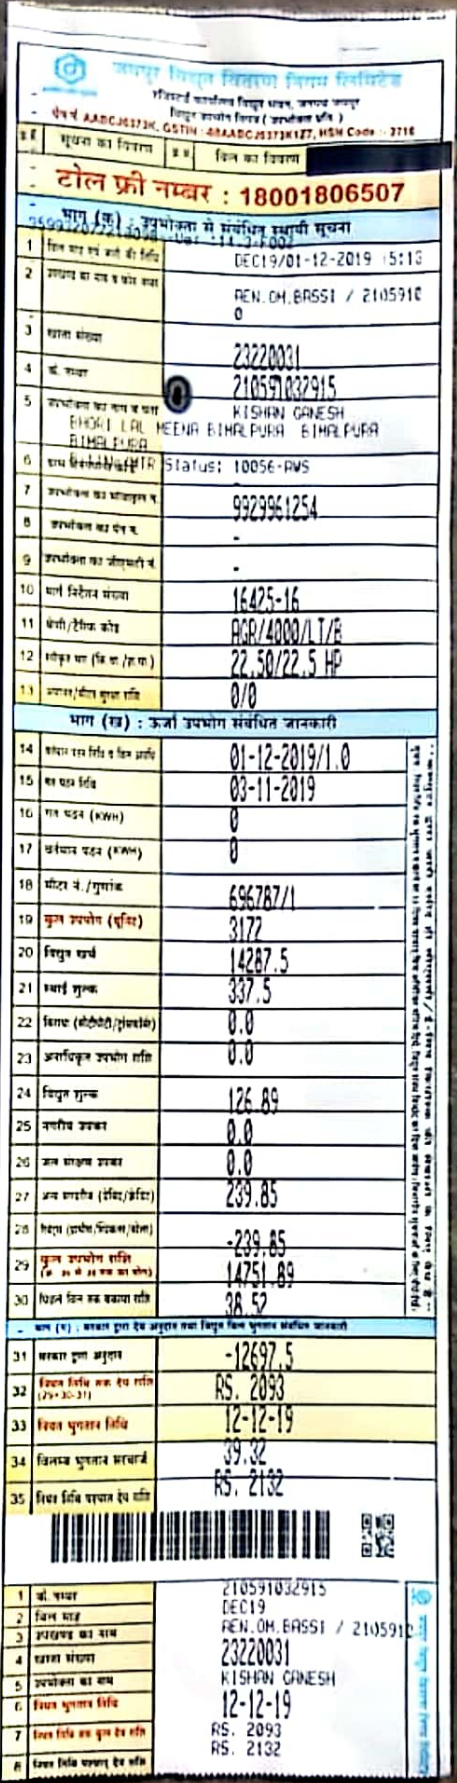 जयपुर विद्युत वितरण निगम लिमिटेड
रजिस्टर्ड कार्यालय विद्युत भवन, जनपथ जयपुर
विद्युत उपभोग विपत्र ( उपभोक्ता प्रति )
AABCJ6373K, GSTIN : HSN Code :- 2716
सूचना का विवरण बिल का विवरण
टोल फ्री नम्बर : 18001806507
भाग (क) : उपभोक्ता से संबंधित स्थायी सूचना
1 DEC19/01-12-2019 15:13
2 AEN.OM.BASSI / 2105910
0
3 खाता संख्या 23220031
4 के. नम्बर 210591032915
5 उपभोक्ता का नाम व पता KISHAN GANESH
BHORI LAL MEENA BIMALPURA BIMALPURA
BIMALPURA
6 MTR Status: 10056-AWS
7 उपभोक्ता का मोबाइल न. 9929961254
8 उपभोक्ता का पेन न. -
9 उपभोक्ता का जीएसटी नं. -
10 मार्ग निर्देशन संख्या 16425-16
11 श्रेणी/टैरिफ कोड AGR/4000/LT/B
12 22.50/22.5 HP
13 0/0
भाग (ख) : ऊर्जा उपभोग संबंधित जानकारी
14 01-12-2019/1.0
15 गत पठन तिथि 03-11-2019
16 गत पठन (KWH) 0
17 वर्तमान पठन (KWH) 0
18 मीटर नं./गुणांक 696787/1
19 कुल उपभोग (यूनिट) 3172
20 विद्युत खर्च 14287.5
21 स्थाई शुल्क 337.5
22 0.0
23 अनाधिकृत उपभोग राशि 0.0
24 विद्युत शुल्क 126.89
25 नगरीय उपकर 0.0
26 जल संरक्षण उपकर 0.0
27 अन्य समायोज (डेबिट/क्रेडिट) 239.85
28 -239.85
29 कुल उपभोग राशि 14751.89
30 पिछले बिल तक बकाया राशि 38.52
31 सरकार द्वारा अनुदान -12697.5
32 नियत तिथि तक देय राशि RS. 2093
(29+30-31)
33 नियत भुगतान तिथि 12-12-19
34 विलम्ब भुगतान सरचार्ज 39.32
35 नियत तिथि पश्चात देय राशि RS. 2132
1 के. नम्बर 210591032915
2 बिल माह DEC19
3 उपखण्ड का नाम AEN.OM.BASSI / 2105910
4 खाता संख्या 23220031
5 उपभोक्ता का नाम KISHAN GANESH
6 नियत भुगतान तिथि 12-12-19
7 नियत तिथि तक कुल देय राशि RS. 2093
8 नियत तिथि पश्चात् देय राशि RS. 2132